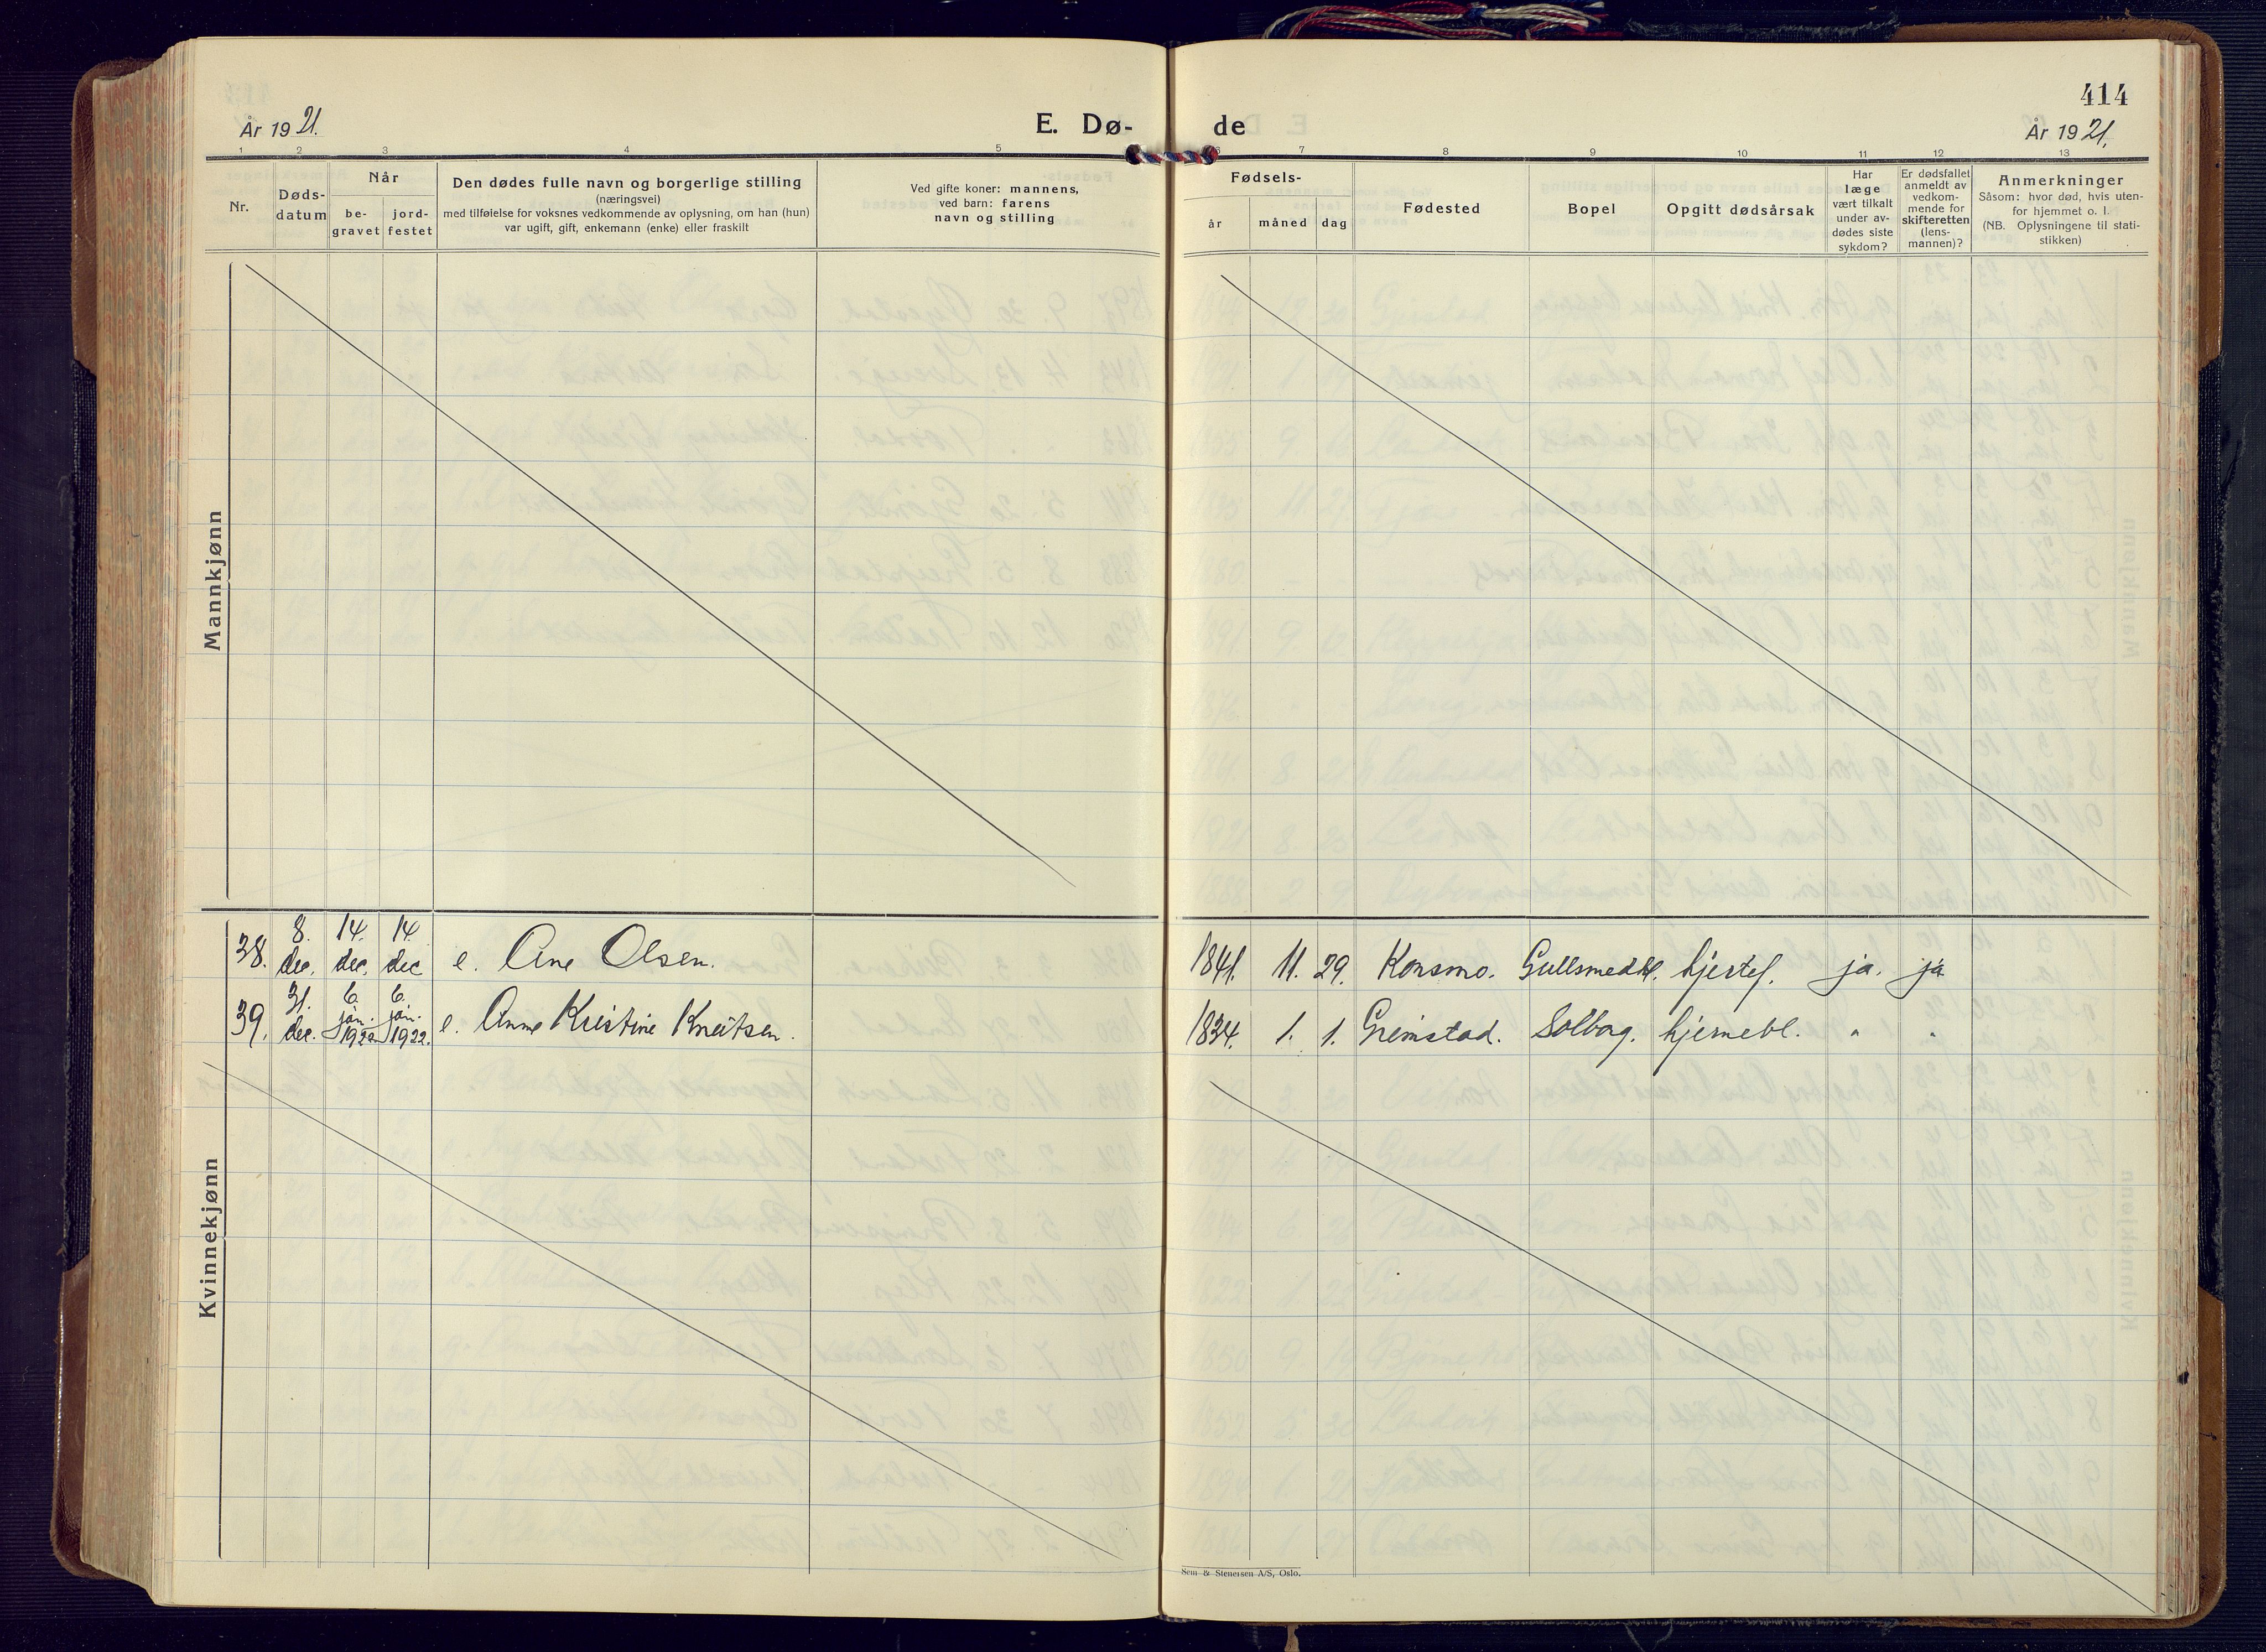 414
År 1921.
E. Dø-
de
År 1921.
1 2 3 4 5 6 7 8 9 10 11 12 13
Nr.
Døds-
datum
Når
be-
gravet
jord-
festet
Den dødes fulle navn og borgerlige stilling
(næringsvei)
med tilføielse for voksnes vedkommende av oplysning, om han (hun)
var ugift, gift, enkemann (enke) eller fraskilt
Ved gifte koner: mannens,
ved barn: farens
navn og stilling
Fødsels-
år
måned
dag
Fødested
Bopel
Opgitt dødsårsak
Har
læge
vært tilkalt
under av-
dødes siste
sykdom?
Er dødsfallet
anmeldt av
vedkom-
mende for
skifteretten
(lens-
mannen)?
Anmerkninger
Såsom: hvor død, hvis uten-
for hjemmet o. l.
(NB. Oplysningene til stati-
stikken)
Mannkjønn
Kvinnekjønn
38. 8. dec. 14. dec. 14. dec e. Ane Olsen. 1841. 11. 29. Konsmo. hjertef. ja. ja
39. 31. dec. 6. jan. 1922 6. jan. 1922. e. Anne Kristine Knutsen. 1834. 1. 1. Grimstad. Solborg. hjernebl. " "
Sem & Stenersen A/S, Oslo.